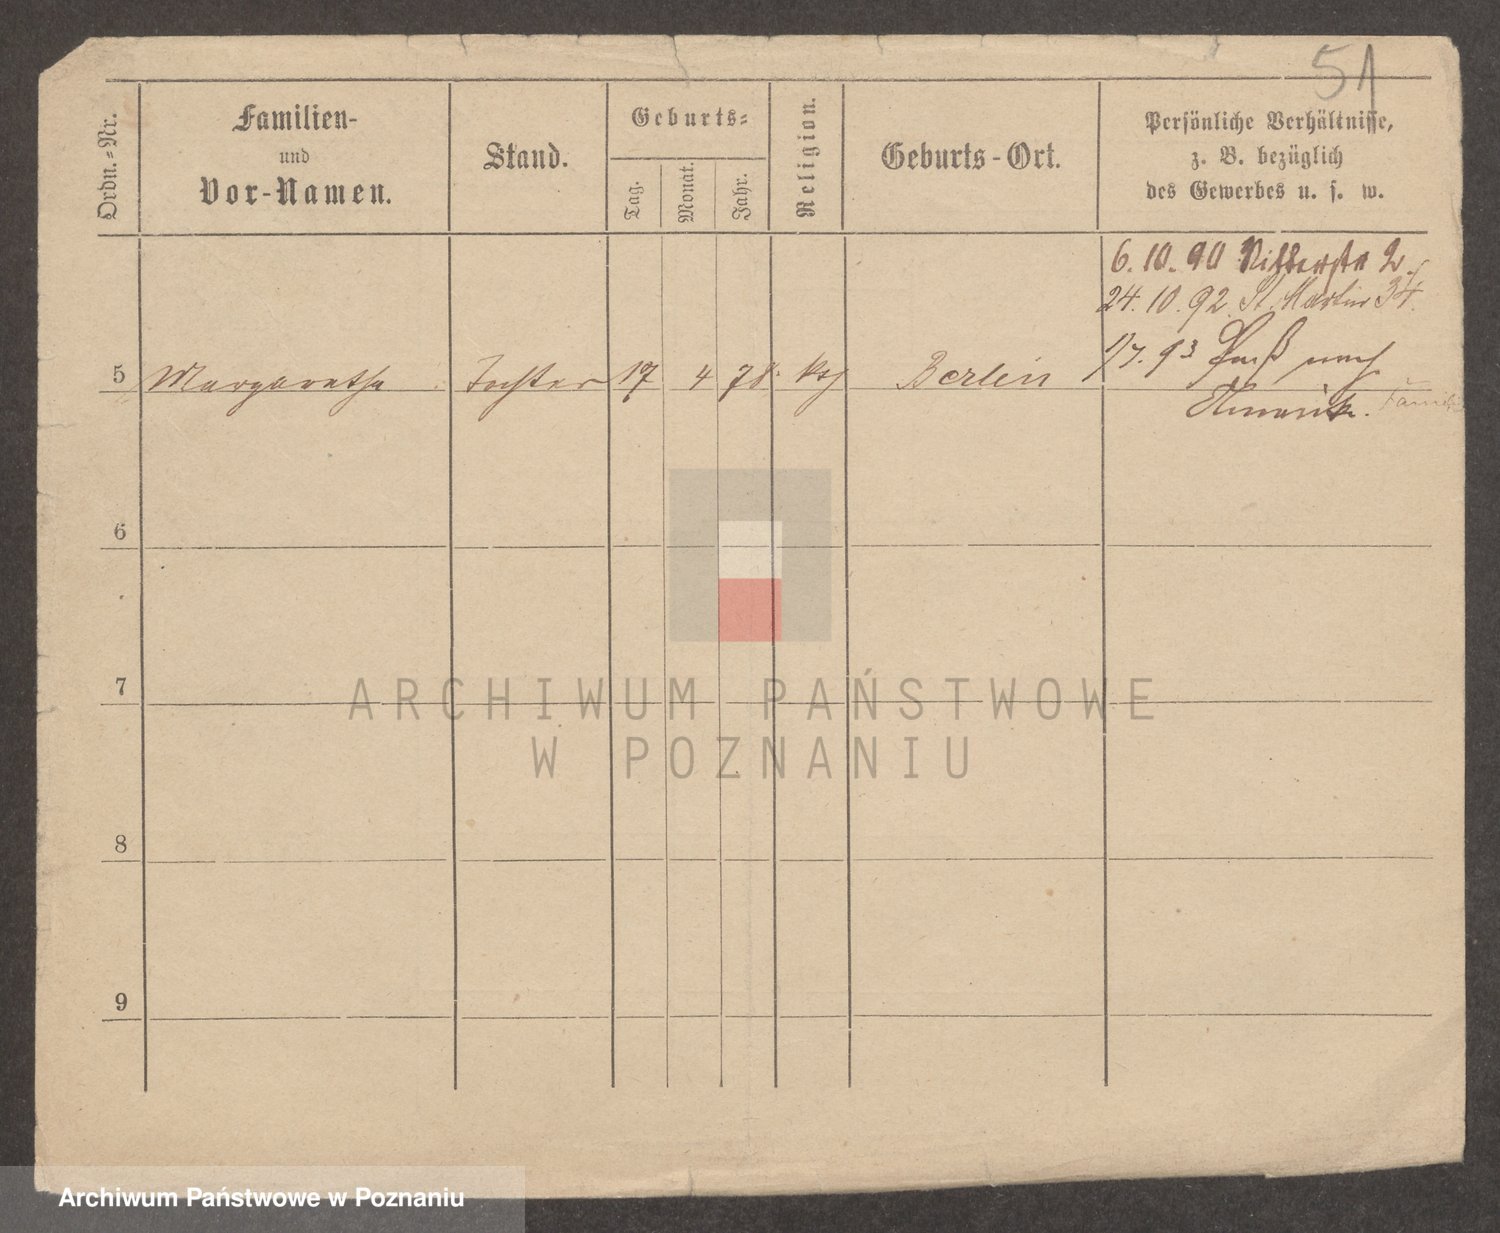 51
Ordn.-Nr.
Familien-
und
Vor-Namen.
Stand.
Geburts-
Tag.
Monat.
Jahr.
Religion.
Geburts-Ort.
Persönliche Verhältnisse,
z. B. bezüglich
des Gewerbes u. s. w.
6. 10. 90 Ritterstr 2.
24. 10. 92. St. Martin 34.
1/7. 93 Paß nach
5 Margarethe Tochter 17 4 78. Berlin
Amerika. Familie
6
7
ARCHIWUM PAŃSTWOWE
W POZNANIU
8
9
Archiwum Państwowe w Poznaniu